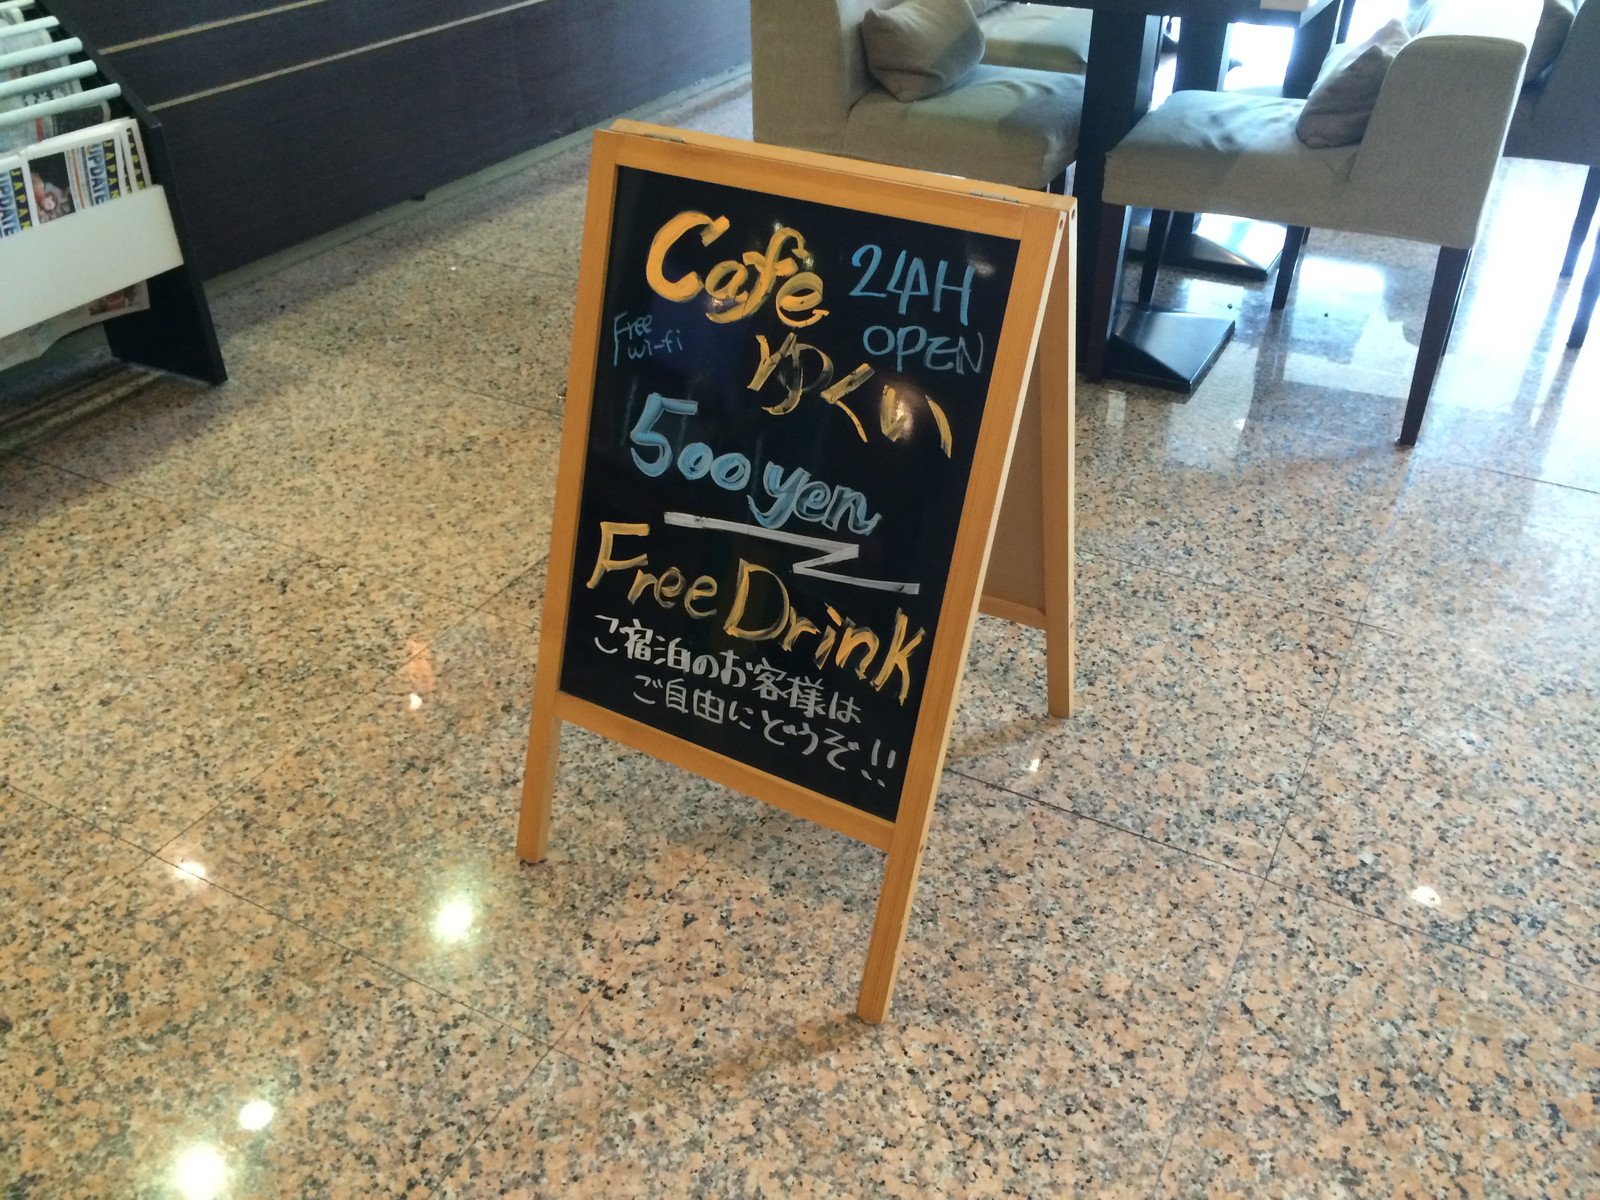 Cafe 24H
OPEN
Free
wi-fi
ゆくい
500yen
Free Drink
ご宿泊のお客様は
ご自由にどうぞ!!
JAPAN
UPDATE
JAPAN
UPDATE